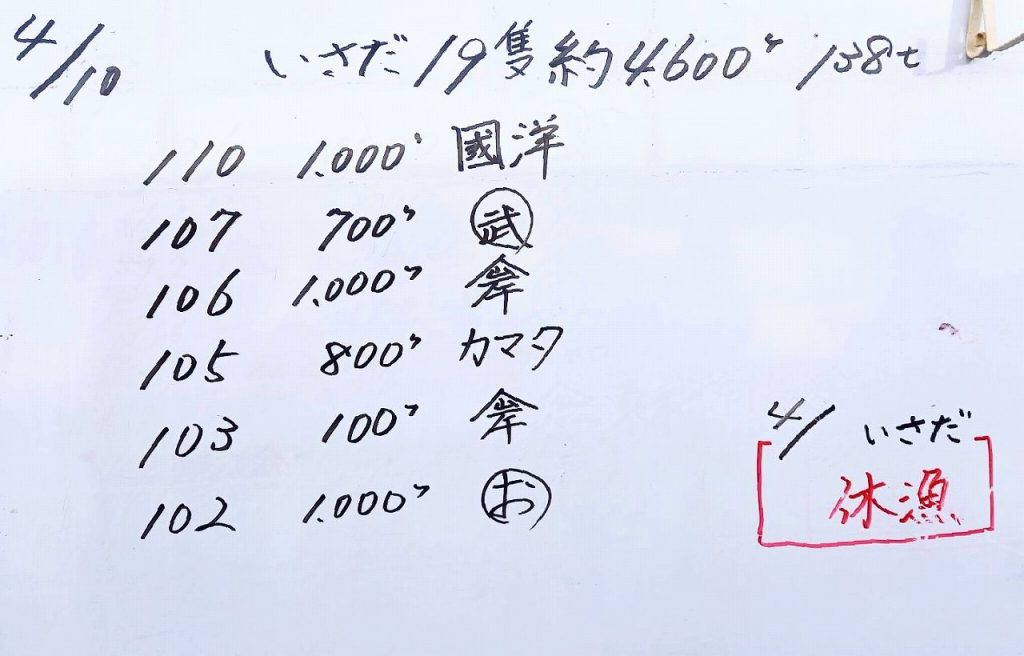 4/10 いさだ 19隻 約4.600ケ 138t
110 1.000ケ 國洋
107 700ケ 武
106 1.000ケ 岸
105 800ケ カマタ
103 100ケ 岸
102 1.000ケ お
4/ いさだ
休漁